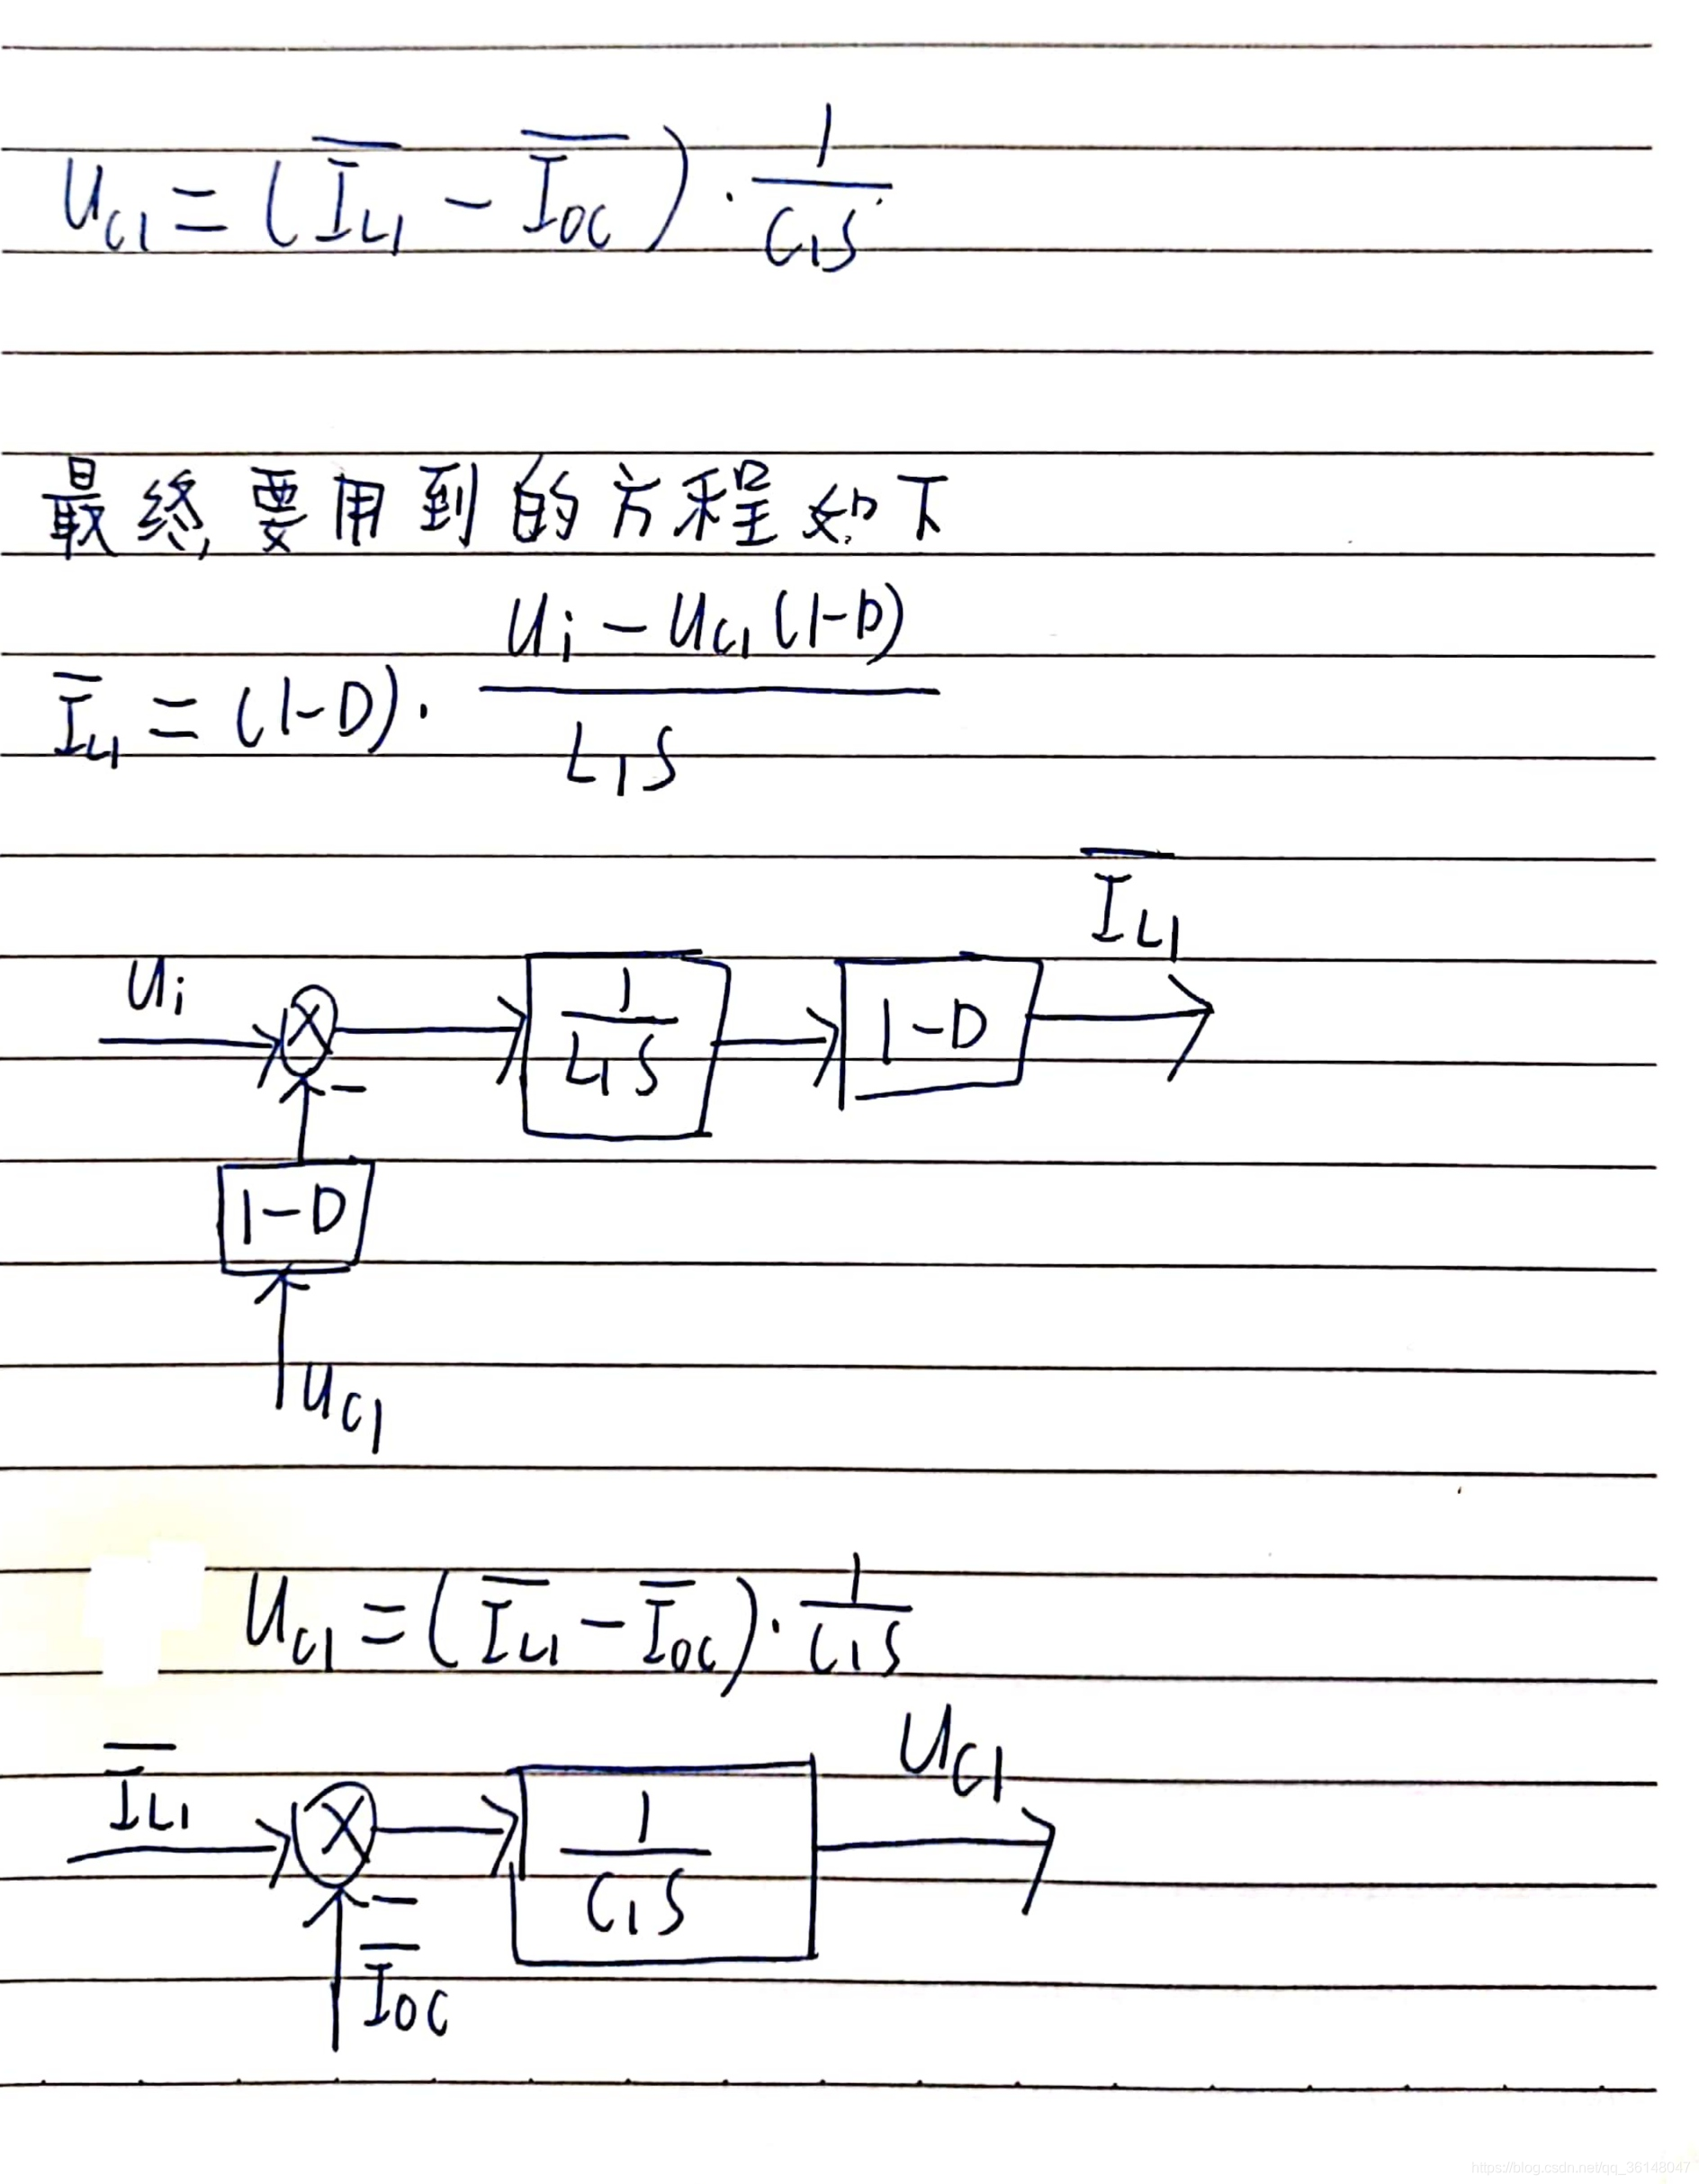 U_{C1} = (\overline{I_{L1}} - \overline{I_{OC}}) · \frac{1}{C_1 S}
最终要用到的方程如下
\overline{I}_{L1} = (1-D) · \frac{U_i - U_{C1}(1-D)}{L_1 S}
\overline{I_{L1}}
U_i
\frac{1}{L_1 S}
1-D
-
1-D
U_{C1}
U_{C1} = (\overline{I_{L1}} - \overline{I_{OC}}) · \frac{1}{C_1 S}
U_{C1}
\overline{I_{L1}}
\frac{1}{C_1 S}
-
\overline{I_{OC}}
https://blog.csdn.net/qq_36148047